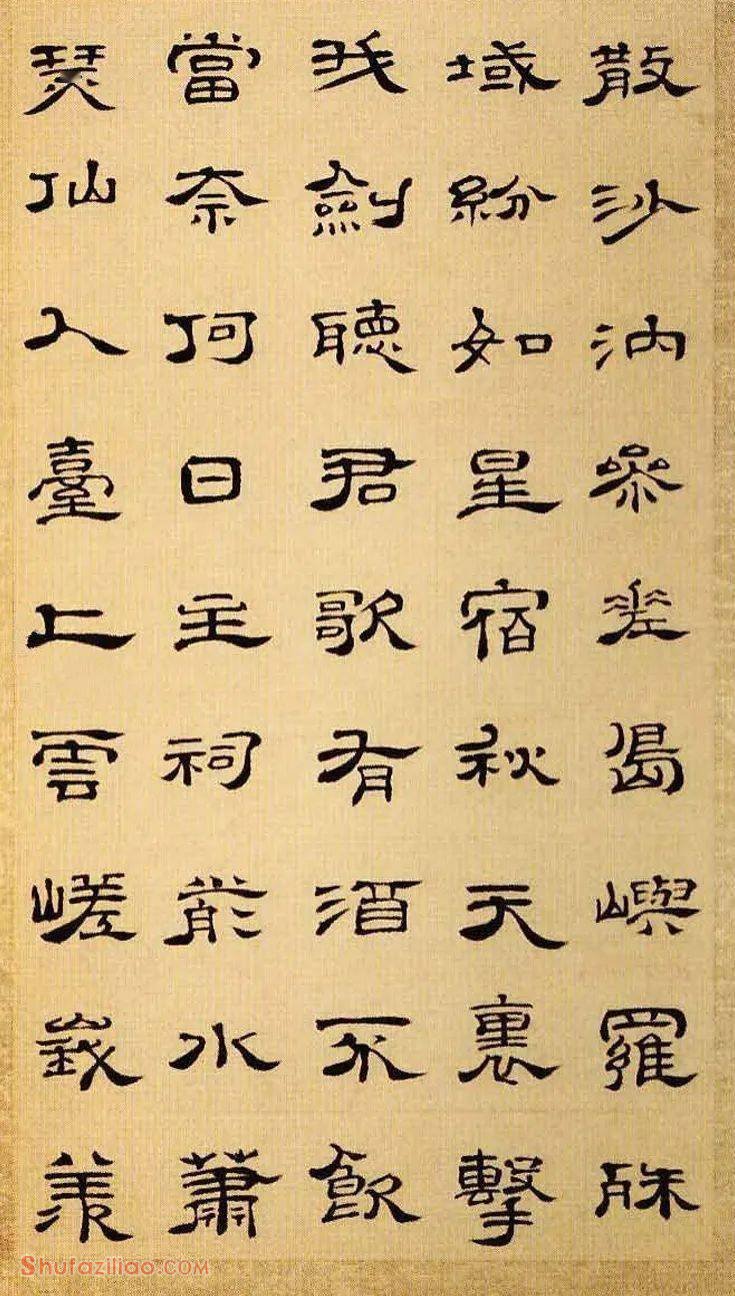 散沙汭參差島嶼羅殊
域紛如星宿秋天裏擊
我劍聽君歌有酒不飲
當奈何日主祠前水蕭
瑟仙人臺上雲嵯峨羨
Shufaziliao.COM